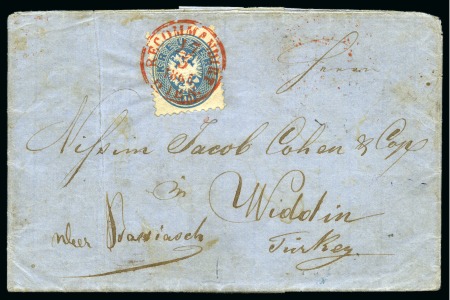 RECOMMANDIRT
Herrn
Nissim Jacob Cohen & Comp
in
Widdin
über Basiasch
Turkey